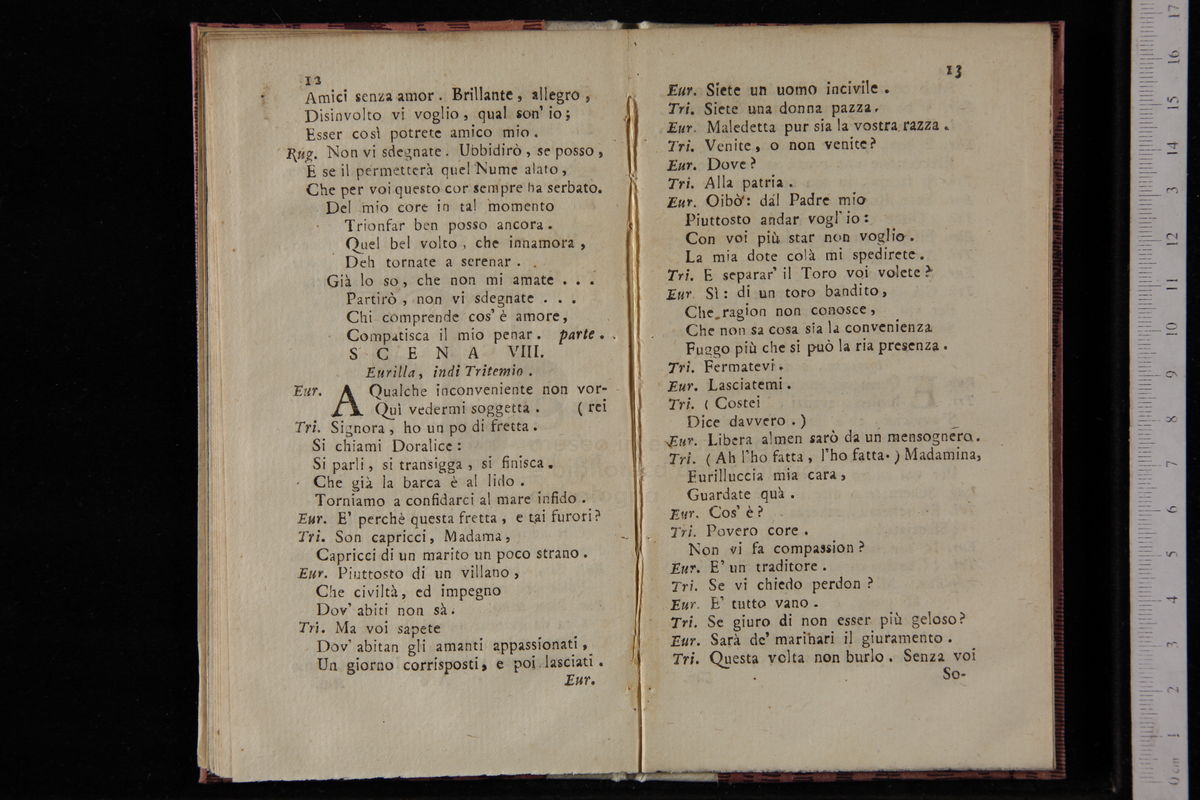 12
Amici senza amor. Brillante, allegro,
Disinvolto vi voglio, qual son' io;
Esser così potrete amico mio.
Rug. Non vi sdegnate. Ubbidirò, se posso,
E se il permetterà quel Nume alato,
Che per voi questo cor sempre ha serbato.
Del mio core in tal momento
Trionfar ben posso ancora.
Quel bel volto, che innamora,
Deh tornate a serenar.
Già lo so, che non mi amate...
Partirò, non vi sdegnate...
Chi comprende cos' è amore,
Compatisca il mio penar. parte.
SCENA VIII.
Eurilla, indi Tritemio.
Eur. A Qualche inconveniente non vor-
Quì vedermi soggetta. (rei
Tri. Signora, ho un po di fretta.
Si chiami Doralice:
Si parli, si transigga, si finisca.
Che già la barca è al lido.
Torniamo a confidarci al mare infido.
Eur. E' perchè questa fretta, e tai furori?
Tri. Son capricci, Madama,
Capricci di un marito un poco strano.
Eur. Piuttosto di un villano,
Che civiltà, ed impegno
Dov' abiti non sà.
Tri. Ma voi sapete
Dov' abitan gli amanti appassionati,
Un giorno corrisposti, e poi lasciati.
Eur.
13
Eur. Siete un uomo incivile.
Tri. Siete una donna pazza.
Eur. Maledetta pur sia la vostra razza.
Tri. Venite, o non venite?
Eur. Dove?
Tri. Alla patria.
Eur. Oibò: dal Padre mio
Piuttosto andar vogl' io:
Con voi più star non voglio.
La mia dote colà mi spedirete.
Tri. E separar' il Toro voi volete?
Eur. Sì: di un toro bandito,
Che ragion non conosce,
Che non sa cosa sia la convenienza
Fuggo più che si può la ria presenza.
Tri. Fermatevi.
Eur. Lasciatemi.
Tri. (Costei
Dice davvero.)
Eur. Libera almen sarò da un mensognero.
Tri. (Ah l'ho fatta, l'ho fatta.) Madamina,
Eurilluccia mia cara,
Guardate quà.
Eur. Cos' è?
Tri. Povero core.
Non vi fa compassion?
Eur. E' un traditore.
Tri. Se vi chiedo perdon?
Eur. E' tutto vano.
Tri. Se giuro di non esser più geloso?
Eur. Sarà de' marinari il giuramento.
Tri. Questa volta non burlo. Senza voi
So-
0 cm 1 2 3 4 5 6 7 8 9 10 11 12 13 14 15 16 17